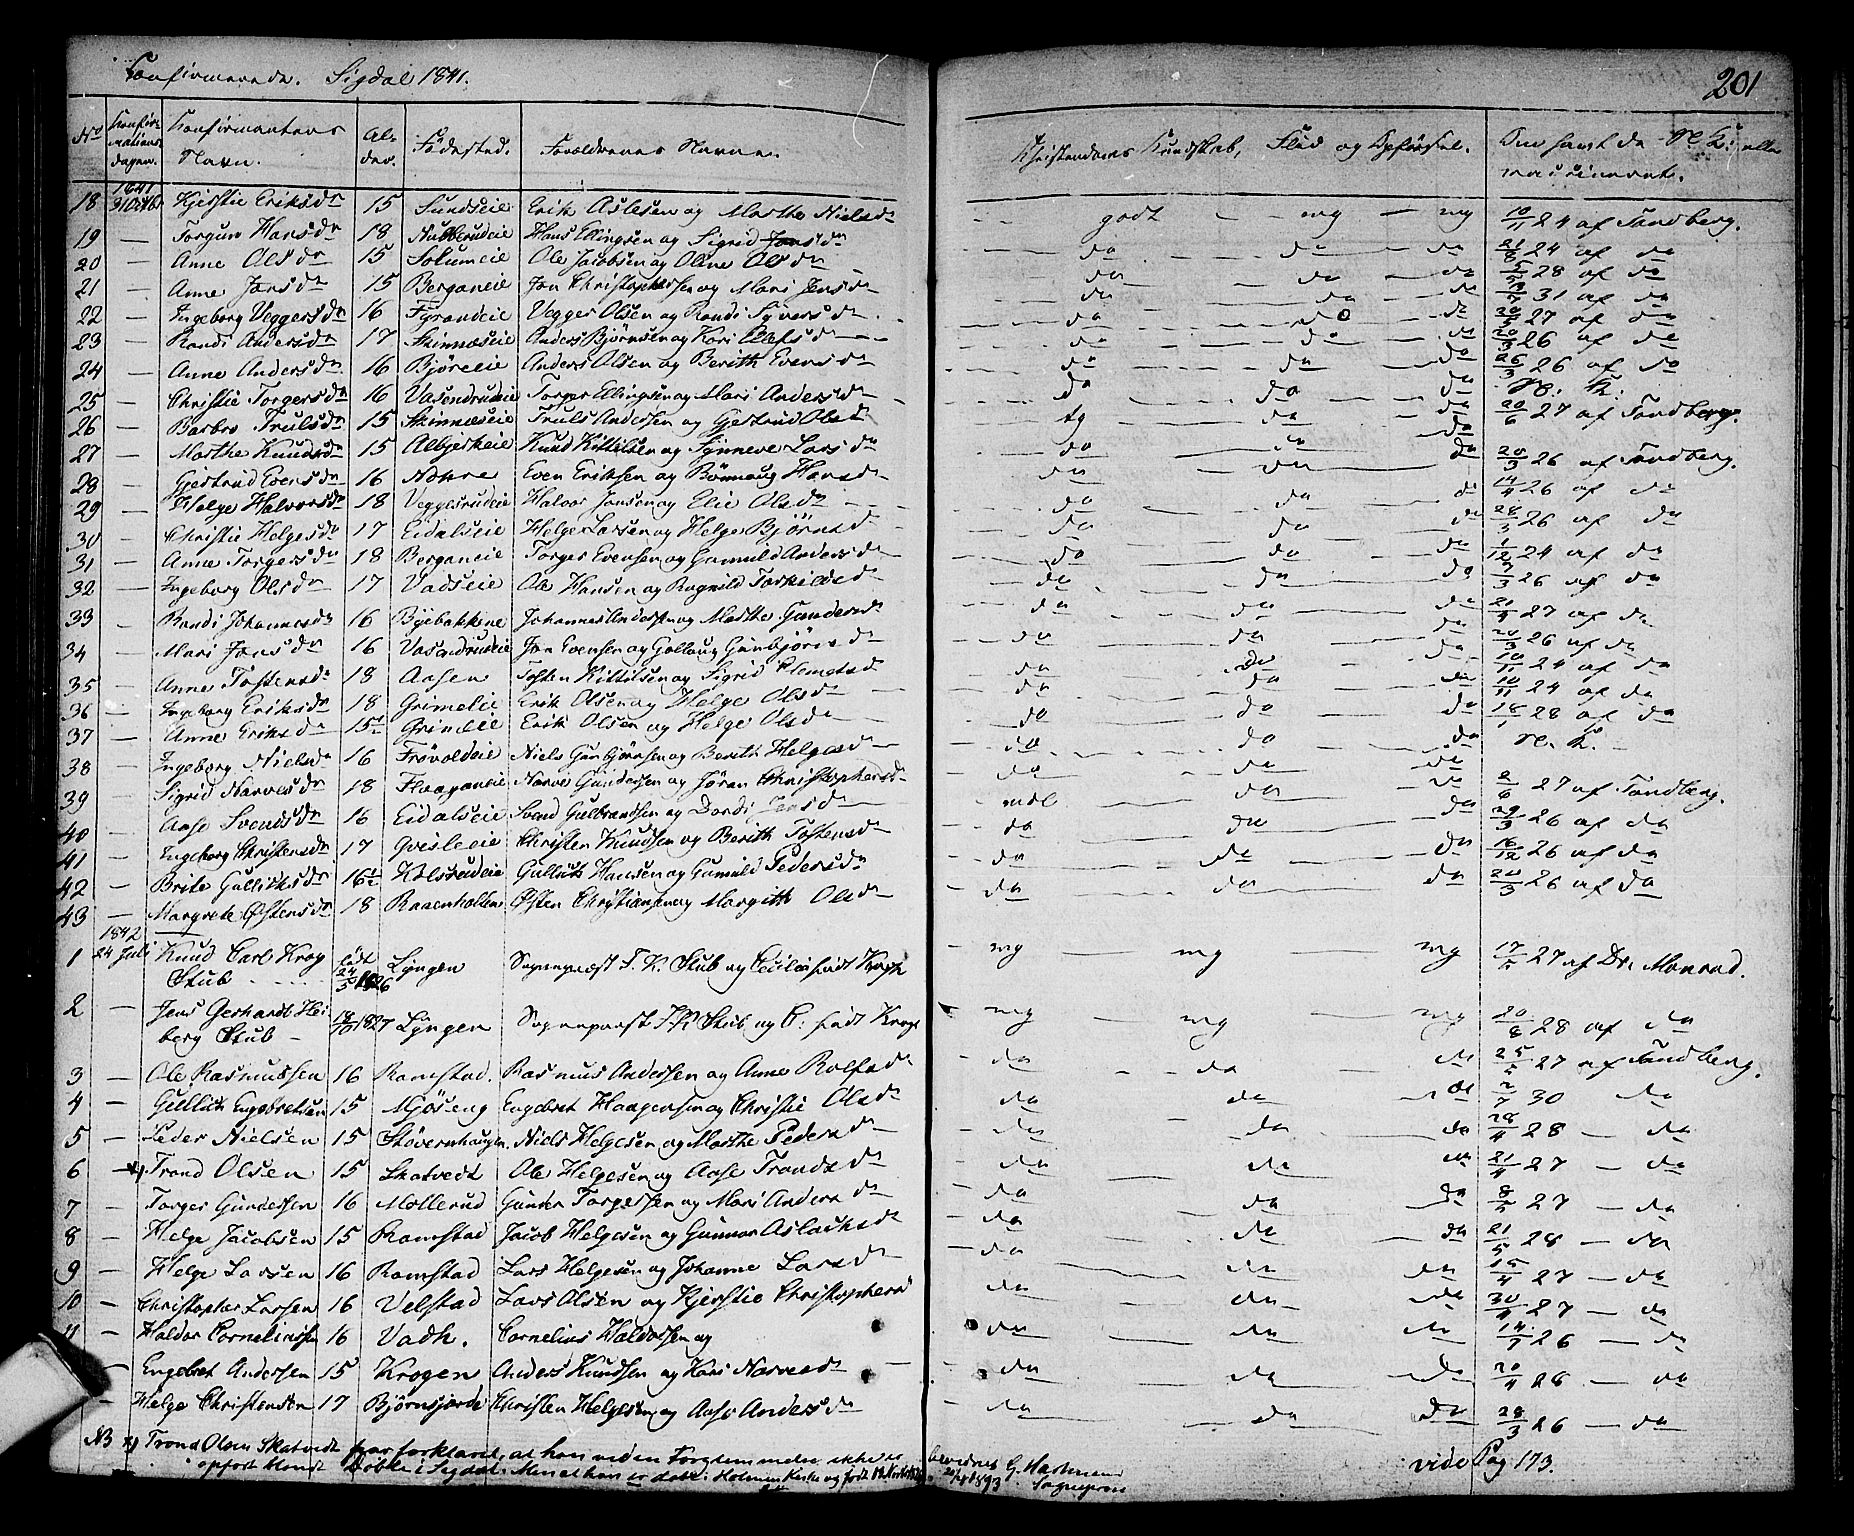 Confirmerede. Sigdal 1841.
201
No Confirmationsdagen. Confirmantens Navn. Alder. Födested. Forældrenes Navne. Christendoms Kundskab, Flid og Opförsel. naar vaccineret.
1841
18 3 Octbr Kjerstie Eriksdr 15 Sundseie Erik Aslesen og Marthe Nielsd godt mg mg 10/11 24 af Sandberg.
19 — Torgun Hansdr 18 Nubberudeie Hans Ellingsen og Sigrid Jonsdr do do do 24 af do
20 — Anne Olsdr 15 Solumeie Ole Jacobsen og Oline Olsdr do do do 28 af do
21 — Anne Jonsdr 15 Berganeie Jon Christophersen og Mari Jensdr do do do 31 af do
22 — Ingeborg Veggersdr 16 Fyrandeie Vegger Olsen og Randi Syversdr do do do 27 af do
23 — Randi Andersdr 17 Skinnæseie Anders Björnsen og Kari Olafsdr do do do 20/3 26 af do
24 — Anne Andersdr 16 Björeeie Anders Olsen og Berith Evensdr do do do 26/3 26 af do
25 — Christie Torgersdr 16 Vasendrudeie Torger Ellingsen og Mari Andersdr do do do N. K.
26 — Barbro Trulsdr 15 Skinnæseie Truls Andersen og Gjertrud Olsd tg do do 20/6 27 af Sandberg.
27 — Marthe Knudsdr 15 Albjerkeie Knud Kittilsen og Synneve Larsdr do do do 20/3 26 af Sandberg.
28 — Gjertrud Evensdr 16 Nokre Even Eriksen og Rönnaug Hansd do do do 14/4 26 af do
29 — Helge Halvorsdr 18 Veggesrudeie Halvor Jonsen og Elie Olsdr do do do 28/3 26 af do
30 — Christie Helgesdr 17 Eidalseie Helge Larsen og Helge Björnsd do do do 1/12 24 af do
31 — Anne Torgersdr 18 Berganeie Torger Evensen og Gunnild Andersdr do do do 26 af do
32 — Ingeborg Olsdr 17 Vadseie Ole Hansen og Ragnild Torkildsd do do do 21/4 27 af do
33 — Randi Johannesdr 16 Byebakkene Johannes Andersen og Marthe Gundersdr do do do 20/3 26 af do
34 — Mari Jonsdr 16 Vasendrudeie Jon Evensen og Gollaug Gunbjörnsdr do do do 10/11 24 af do
35 — Anne Tostensdr 18 Aasen Tosten Kittilsen og Sigrid Clemetsd do do do 10/11 24 af do
36 — Ingeborg Eriksdr 18 Grimelie Erik Olsen og Helge Olsdr do do do 18/1 28 af do
37 — Anne Eriksdr 15½ Grimeie Erik Olsen og Helge Olsdr do do do N. K.
38 — Ingeborg Nielsdr 16 Frövoldeie Niels Gunbjörnsen og Berith Helgesd do do do 2/6 27 af Sandberg.
39 — Sigrid Narvesdr 18 Flaaganeie Narve Gundersen og Jöran Christophersd mdl do do 29/3 26 af do
40 — Aase Svendsdr 16 Eidalseie Svend Gulbrandsen og Dordi Jensdr do do do 16/12 26 af do
41 — Ingeborg Christensdr 17 Gvisleeie Christen Knudsen og Berith Tostensdr do do do 20/3 26 af do
42 — Brite Gullichsdr 16½ Kolsrudeie Gulluk Hansen og Gunuld Pedersdr do do do
43 — Margrete Östensdr 18 Raaenholten Östen Christiansen og Margith Olsd
1842
1 24 Juli Knud Carl Krog Stub födt 24/5 1826 Lyngen Sognepræst T. K. Stub og Cecilia födt Krogh mg mg mg 17/5 27 af Dr. Monrad.
2 — Jens Gerhardt Heiberg Stub 18/10 1827 Lyngen Sognepræst T K Stub og C. födt Krogh mg mg mg 20/8 28 af do
3 — Ole Rasmussen 16 Ramstad. Rasmus Andersen og Anne Rolfsdr do do do 25/5 27 af Sandberg.
4 — Gulluk Engebretsen 15 Mjöseng Engebret Haagensen og Christie Olsdr do do do 2/7 30 do
5 — Peder Nielsen 15 Stövernhaugen Niels Helgesen og Marthe Pedersdr do do do 28/4 28 — do
6 — x) Trond Olsen 15 Skatvedt Ole Helgesen og Aase Trondsdr do do do 21/4 27 — do
7 — Torger Gundersen 16 Mollerud Gunder Torgersen og Mari Andersdr do do do 8/5 27 — do
8 — Helge Jacobsen 15 Ramstad Jacob Helgesen og Gunnor Aslachsdr do do do 21/5 28 — do
9 — Helge Larsen 16 Ramstad Lars Helgesen og Johanne Larsdr do do do 15/4 27 — do
10 — Christopher Larsen 16 Velstad Lars Olsen og Kjerstie Christophersd do do do 30/4 27 — do
11 — Haldor Corneliussen 16 Vadh. Cornelius Haldorsen og do do do 14/7 26 — do
— Engebret Andersen 15 Krogen Anders Knudsen og Kari Narvesdr do do do 20/4 28 — do
— Helge Christensen 17 Björnsjorde Christen Helgesen og Aase Andersdr do do do 28/3 26 — do
NB x) Trond Olsen Skatvedt har forklaret, at han ved en Forglemmelse ikke er
opfört blandt Döbte i Sigdal. Men at han er döbt i Holmen Kirke og födt
bevidnes G. Hartmann
1893 Sognepræst
vide Pag 173.